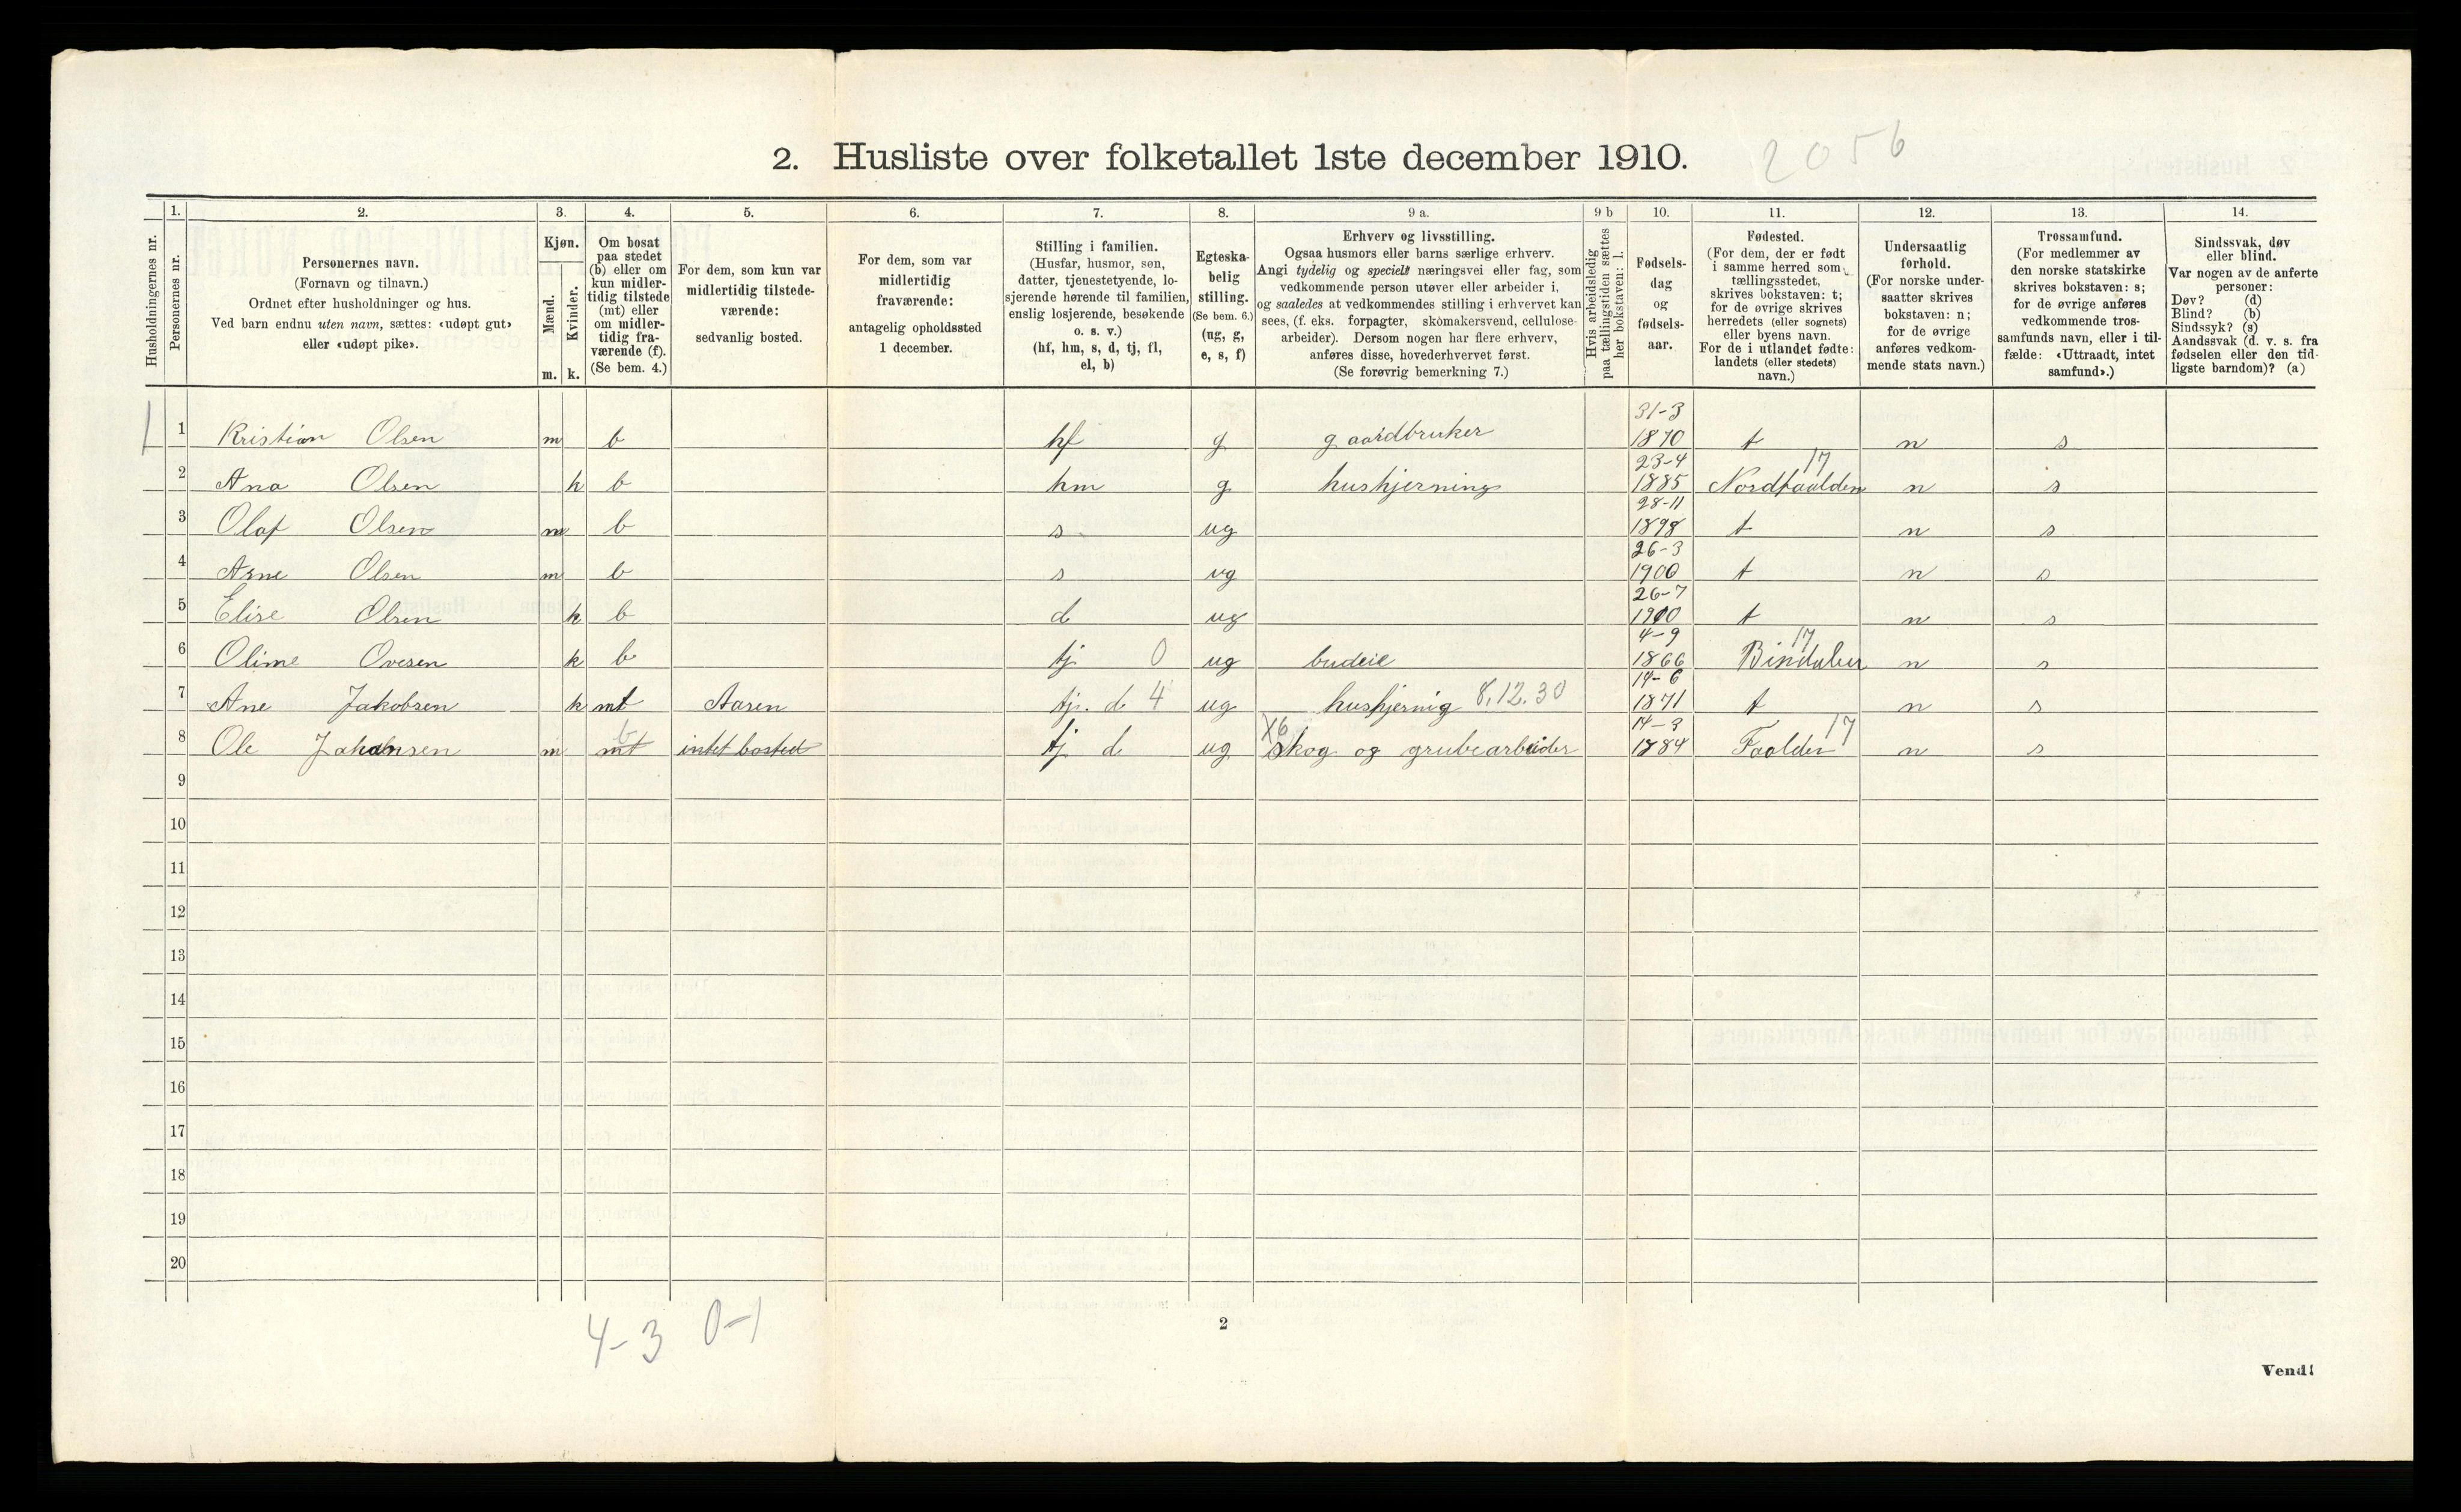 2. Husliste over folketallet 1ste december 1910.
2056
1. 2. 3. 4. 5. 6. 7. 8. 9 a. 9 b 10. 11. 12. 13. 14.
Husholdningernes nr.
Personernes nr.
Personernes navn.
(Fornavn og tilnavn.)
Ordnet efter husholdninger og hus.
Ved barn endnu uten navn, sættes: «udøpt gut»
eller «udøpt pike».
Kjøn.
Mænd.
Kvinder.
m. k.
Om bosat
paa stedet
(b) eller om
kun midler-
tidig tilstede
(mt) eller
om midler-
tidig fra-
værende (f).
(Se bem. 4.)
For dem, som kun var
midlertidig tilstede-
værende:
sedvanlig bosted.
For dem, som var
midlertidig
fraværende:
antagelig opholdssted
1 december.
Stilling i familien.
(Husfar, husmor, søn,
datter, tjenestetyende, lo-
sjerende hørende til familien,
enslig losjerende, besøkende
o. s. v.)
(hf, hm, s, d, tj, fl,
el, b)
Egteska-
belig
stilling.
(Se bem. 6.)
(ug, g,
e, s, f)
Erhverv og livsstilling.
Ogsaa husmors eller barns særlige erhverv.
Angi tydelig og specielt næringsvei eller fag, som
vedkommende person utøver eller arbeider i,
og saaledes at vedkommendes stilling i erhvervet kan
sees, (f. eks. forpagter, skomakersvend, cellulose-
arbeider). Dersom nogen har flere erhverv,
anføres disse, hovederhvervet først.
(Se forøvrig bemerkning 7.)
Hvis arbeidsledig
paa tællingstiden sættes
her bokstaven: l.
Fødsels-
dag
og
fødsels-
aar.
Fødested.
(For dem, der er født
i samme herred som
tællingsstedet,
skrives bokstaven: t;
for de øvrige skrives
herredets (eller sognets)
eller byens navn.
For de i utlandet fødte:
landets (eller stedets)
navn.)
Undersaatlig
forhold.
(For norske under-
saatter skrives
bokstaven: n;
for de øvrige
anføres vedkom-
mende stats navn.)
Trossamfund.
(For medlemmer av
den norske statskirke
skrives bokstaven: s;
for de øvrige anføres
vedkommende tros-
samfunds navn, eller i til-
fælde: «Uttraadt, intet
samfund».)
Sindssvak, døv
eller blind.
Var nogen av de anførte
personer:
Døv? (d)
Blind? (b)
Sindssyk? (s)
Aandssvak (d. v. s. fra
fødselen eller den tid-
ligste barndom)? (a)
31-3
1 1 Kristian Olsen m b hf g gaardbruker 1870 t n s
23-4 17
2 Ana Olsen k b hm g hushjerning 1885 Nordfaalden n s
28-11
3 Olaf Olsen m b s ug 1898 t n s
26-3
4 Arne Olsen m b s ug 1900 t n s
26-7
5 Elise Olsen k b d ug 1910 t n s
4-9 17
6 Oline Ovesen k b tj 0 ug budeie 1866 Bindalen n s
14-6
7 Ane Jakobsen k mt Aaren tj. d 4 ug hushjernig 8.12.30 1871 t n s
b X6 14-3 17
8 Ole Johansen m mt intet bosted tj d ug skog og grubearbeider 1884 Faalden n s
9
10
11
12
13
14
15
16
17
18
19
20
4-3 0-1
2
Vend!